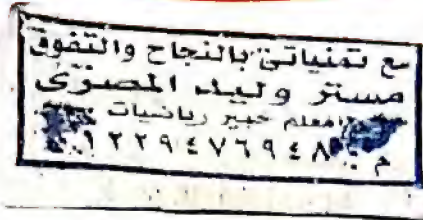 مع تمنياتى بالنجاح والتفوق
مستر وليد المصرى
معلم خبير رياضيات
م ٠١٢٢٩٤٧٦٩٤٨